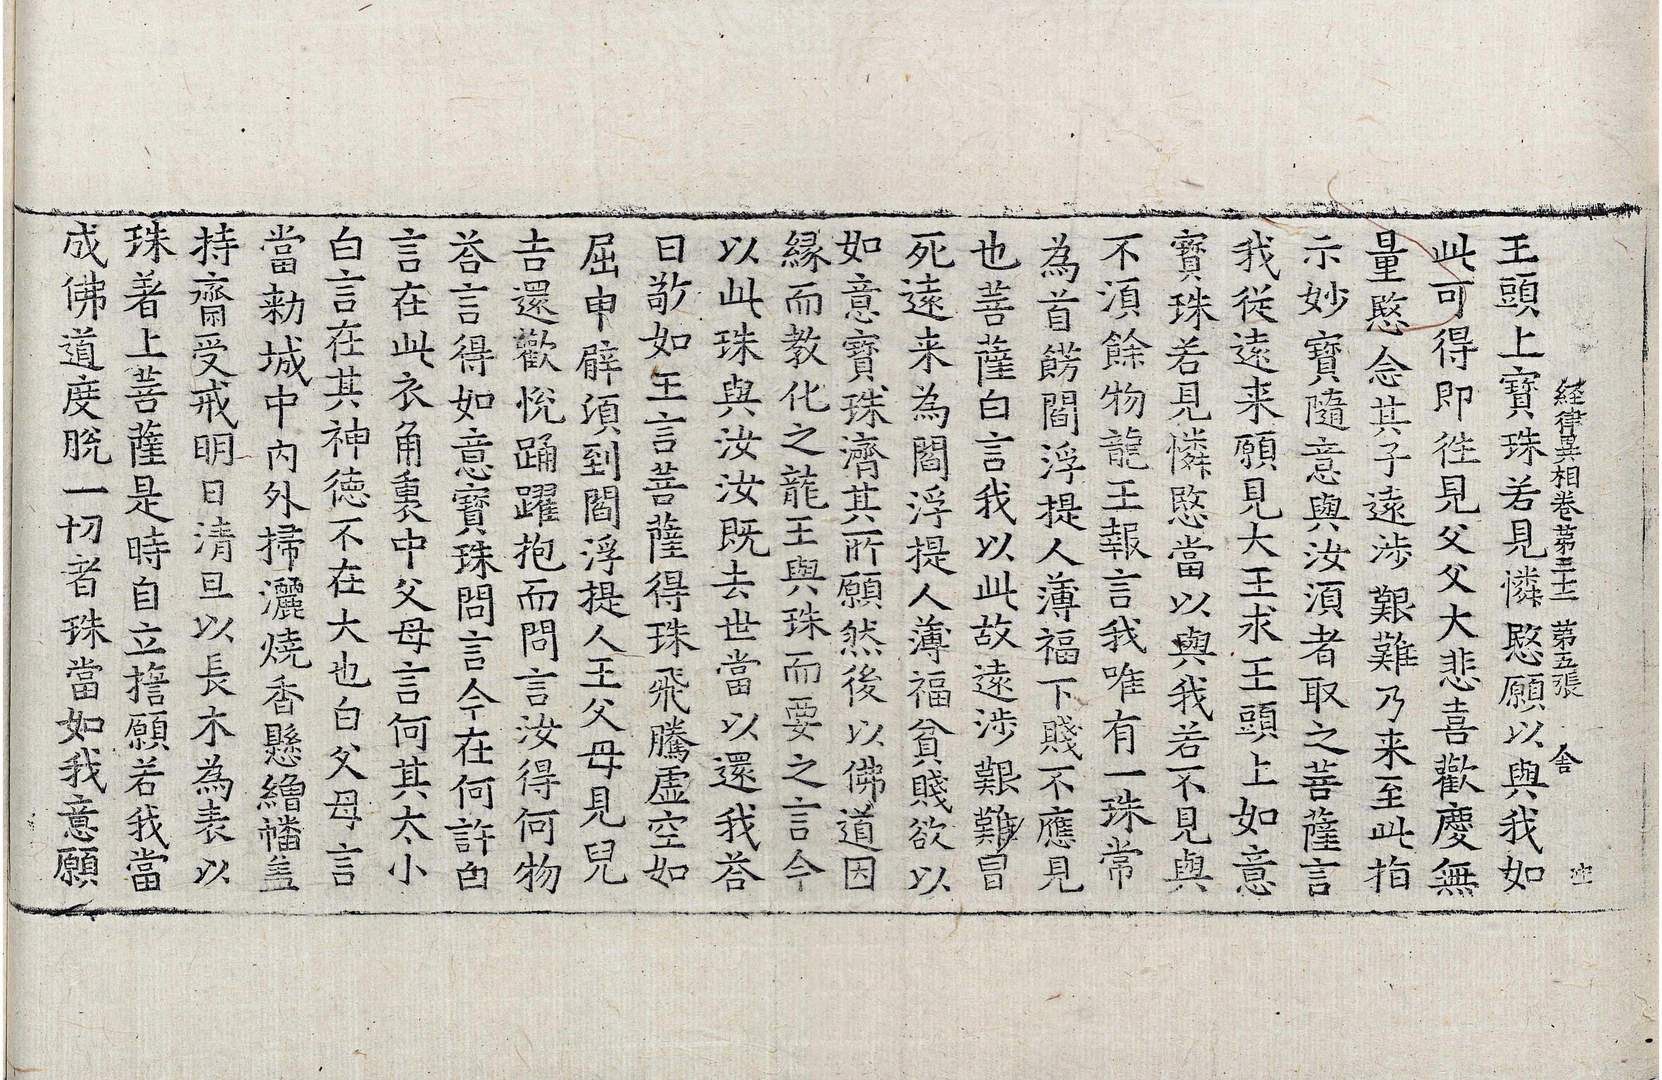 経律異相卷第三十二　第五張　舍
王頭上寶珠若見憐愍願以與我如
此可得即往見父父大悲喜歡慶無
量愍念其子遠涉艱難乃来至此指
示妙寶隨意與汝湏者取之菩薩言
我從遠来願見大王求王頭上如意
寶珠若見憐愍當以與我若不見與
不湏餘物龍王報言我唯有一珠常
為首餝閻浮提人薄福下賤不應見
也菩薩白言我以此故遠涉艱難冒
死遠来為閻浮提人薄福貧賤欲以
如意寶珠濟其所願然後以佛道因
縁而教化之龍王與珠而要之言今
以此珠與汝汝既去世當以還我荅
曰敬如王言菩薩得珠飛騰虛空如
屈申臂湏到閻浮提人王父母見兒
吉還歡悅踊躍抱而問言汝得何物
荅言得如意寶珠問言今在何許白
言在此衣角裏中父母言何其太小
白言在其神德不在大也白父母言
當勑城中內外掃灑燒香懸繒幡盖
持齋受戒明日清旦以長木為表以
珠著上菩薩是時自立擔願若我當
成佛道度脫一切者珠當如我意願